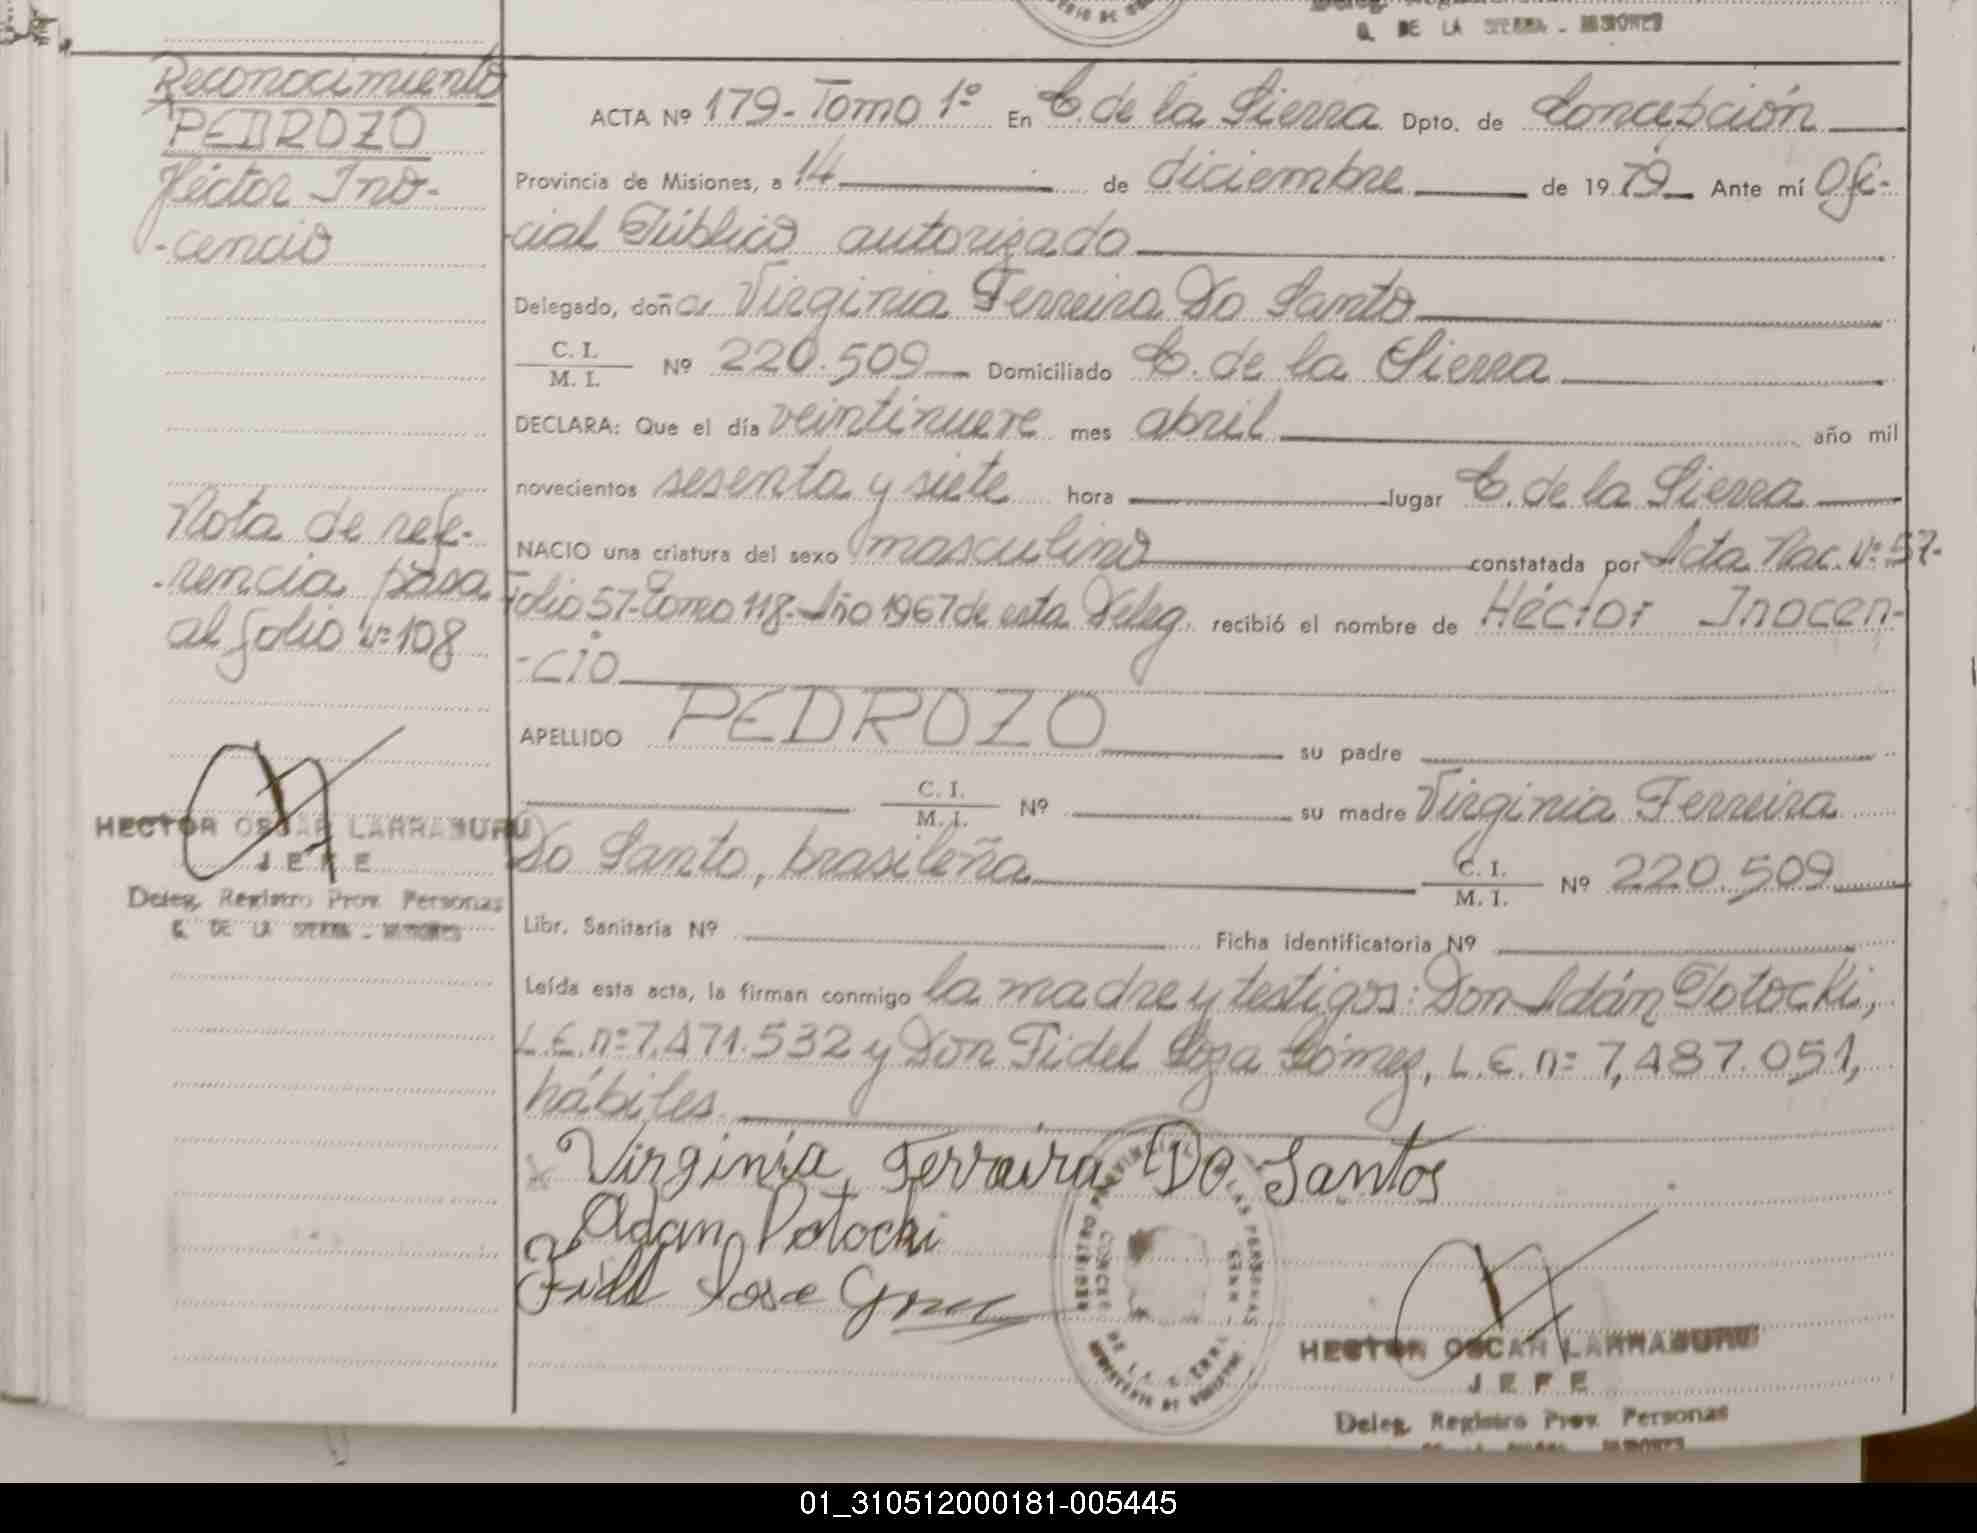 Q. DE LA SIERRA - MISIONES
Reconocimiento
PEDROZO
Héctor Ino-
-cencio
Nota de refe-
-rencia pasa
al folio nº 108
HECTOR OSCAR LARRABURU
JEFE
Deleg. Registro Prov. Personas
C. DE LA SIERRA - MISIONES
ACTA Nº 179-Tomo 1º En C. de la Sierra Dpto. de Concepción
Provincia de Misiones, a 14 de diciembre de 1979 Ante mí Ofi-
-cial Público autorizado
Delegado, doña Virginia Ferreira Do Santo
C. I. / M. I. Nº 220.509 Domiciliado C. de la Sierra
DECLARA: Que el día veintinueve mes abril año mil
novecientos sesenta y siete hora lugar C. de la Sierra
NACIO una criatura del sexo masculino constatada por Acta Nac. Nº 57-
Folio 57-Tomo 118-Año 1967 de esta Deleg. recibió el nombre de Héctor Inocen-
-cio
APELLIDO PEDROZO su padre
C. I. / M. I. Nº su madre Virginia Ferreira
Do Santo, brasileña C. I. / M. I. Nº 220.509
Libr. Sanitaria Nº Ficha identificatoria Nº
Leída esta acta, la firman conmigo la madre y testigos: Don Adán Potocki,
L.E. nº 7.471.532 y Don Fidel Gómez, L.E. nº 7,487.051,
hábiles
Virginia Ferreira Do Santos
Adan Potocki
Fidel Jose
REGISTRO PROVINCIAL DE LAS PERSONAS
DE LA SIERRA
HECTOR OSCAR LARRABURU
JEFE
Deleg. Registro Prov. Personas
01_310512000181-005445